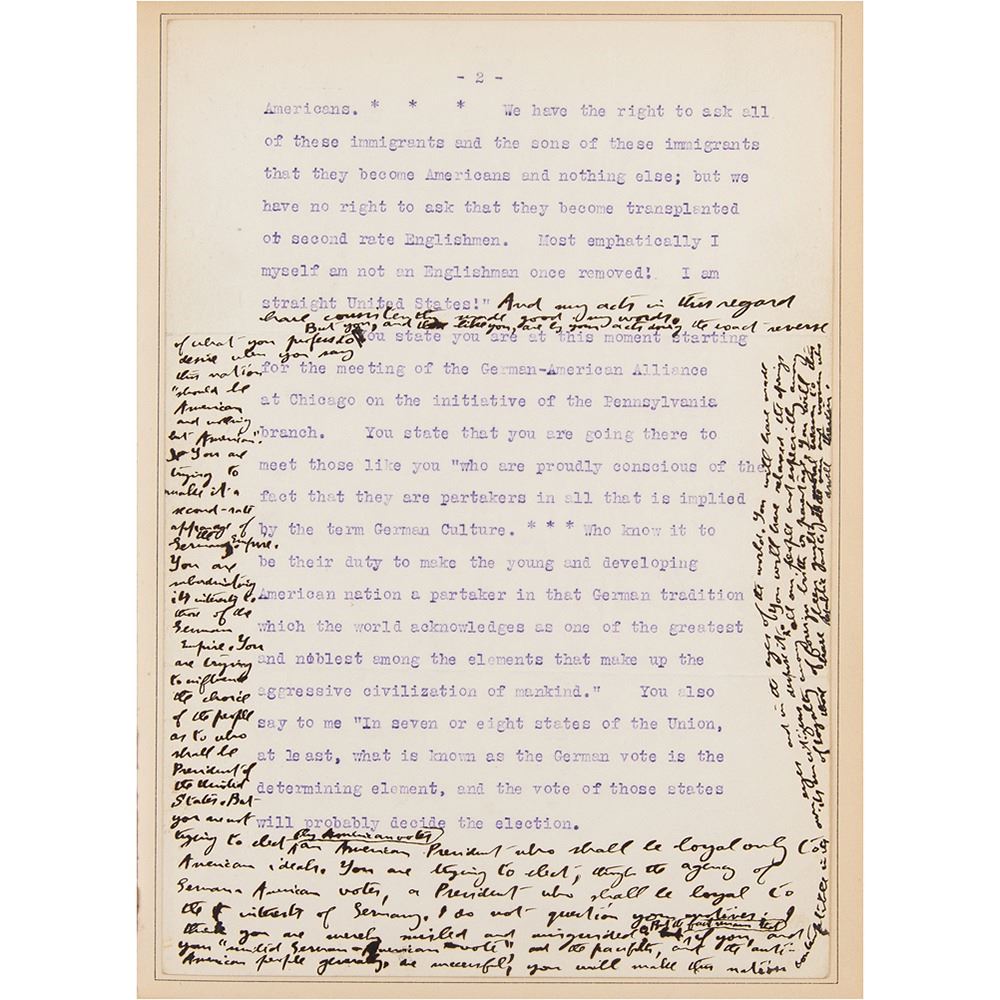 - 2 -
Americans. * * * We have the right to ask all
of these immigrants and the sons of these immigrants
that they become Americans and nothing else; but we
have no right to ask that they become transplanted
or second rate Englishmen. Most emphatically I
myself am not an Englishman once removed! I am
straight United States!" And my acts in this regard
have consistently made good my words.
But you, and those like you, are by your acts doing the exact reverse
of what you profess to
desire when you say
this nation
"should be
American
and nothing
but American".
You are
trying to
make it a
second-rate
appanage of
the
German Empire.
You are
subordinating
its interests to
those of the
German
Empire. You
are trying
to influence
the choice
of the people
as to who
shall be
President of
the United
States. But
you are not
You state you are at this moment starting
for the meeting of the German-American Alliance
at Chicago on the initiative of the Pennsylvania
branch. You state that you are going there to
meet those like you "who are proudly conscious of the
fact that they are partakers in all that is implied
by the term German Culture. * * * Who know it to
be their duty to make the young and developing
American nation a partaker in that German tradition
which the world acknowledges as one of the greatest
and noblest among the elements that make up the
aggressive civilization of mankind." You also
say to me "In seven or eight states of the Union,
at least, what is known as the German vote is the
determining element, and the vote of those states
will probably decide the election.
by American votes
trying to elect an American President who shall be loyal only to
American ideals. You are trying to elect, through the agency of
German American votes, a President who shall be loyal to
the interests of Germany. I do not question your motives; I
think you are merely misled and misguided. But the fact remains that if you, and
your "united German-American vote", and the pacifists, and the anti-
American people generally, are successful, you will make this nation
in the eyes of the world. You will have made
and despise it. You will have relaxed the springs
all our people and especially among
of foreign birth or parentage you will